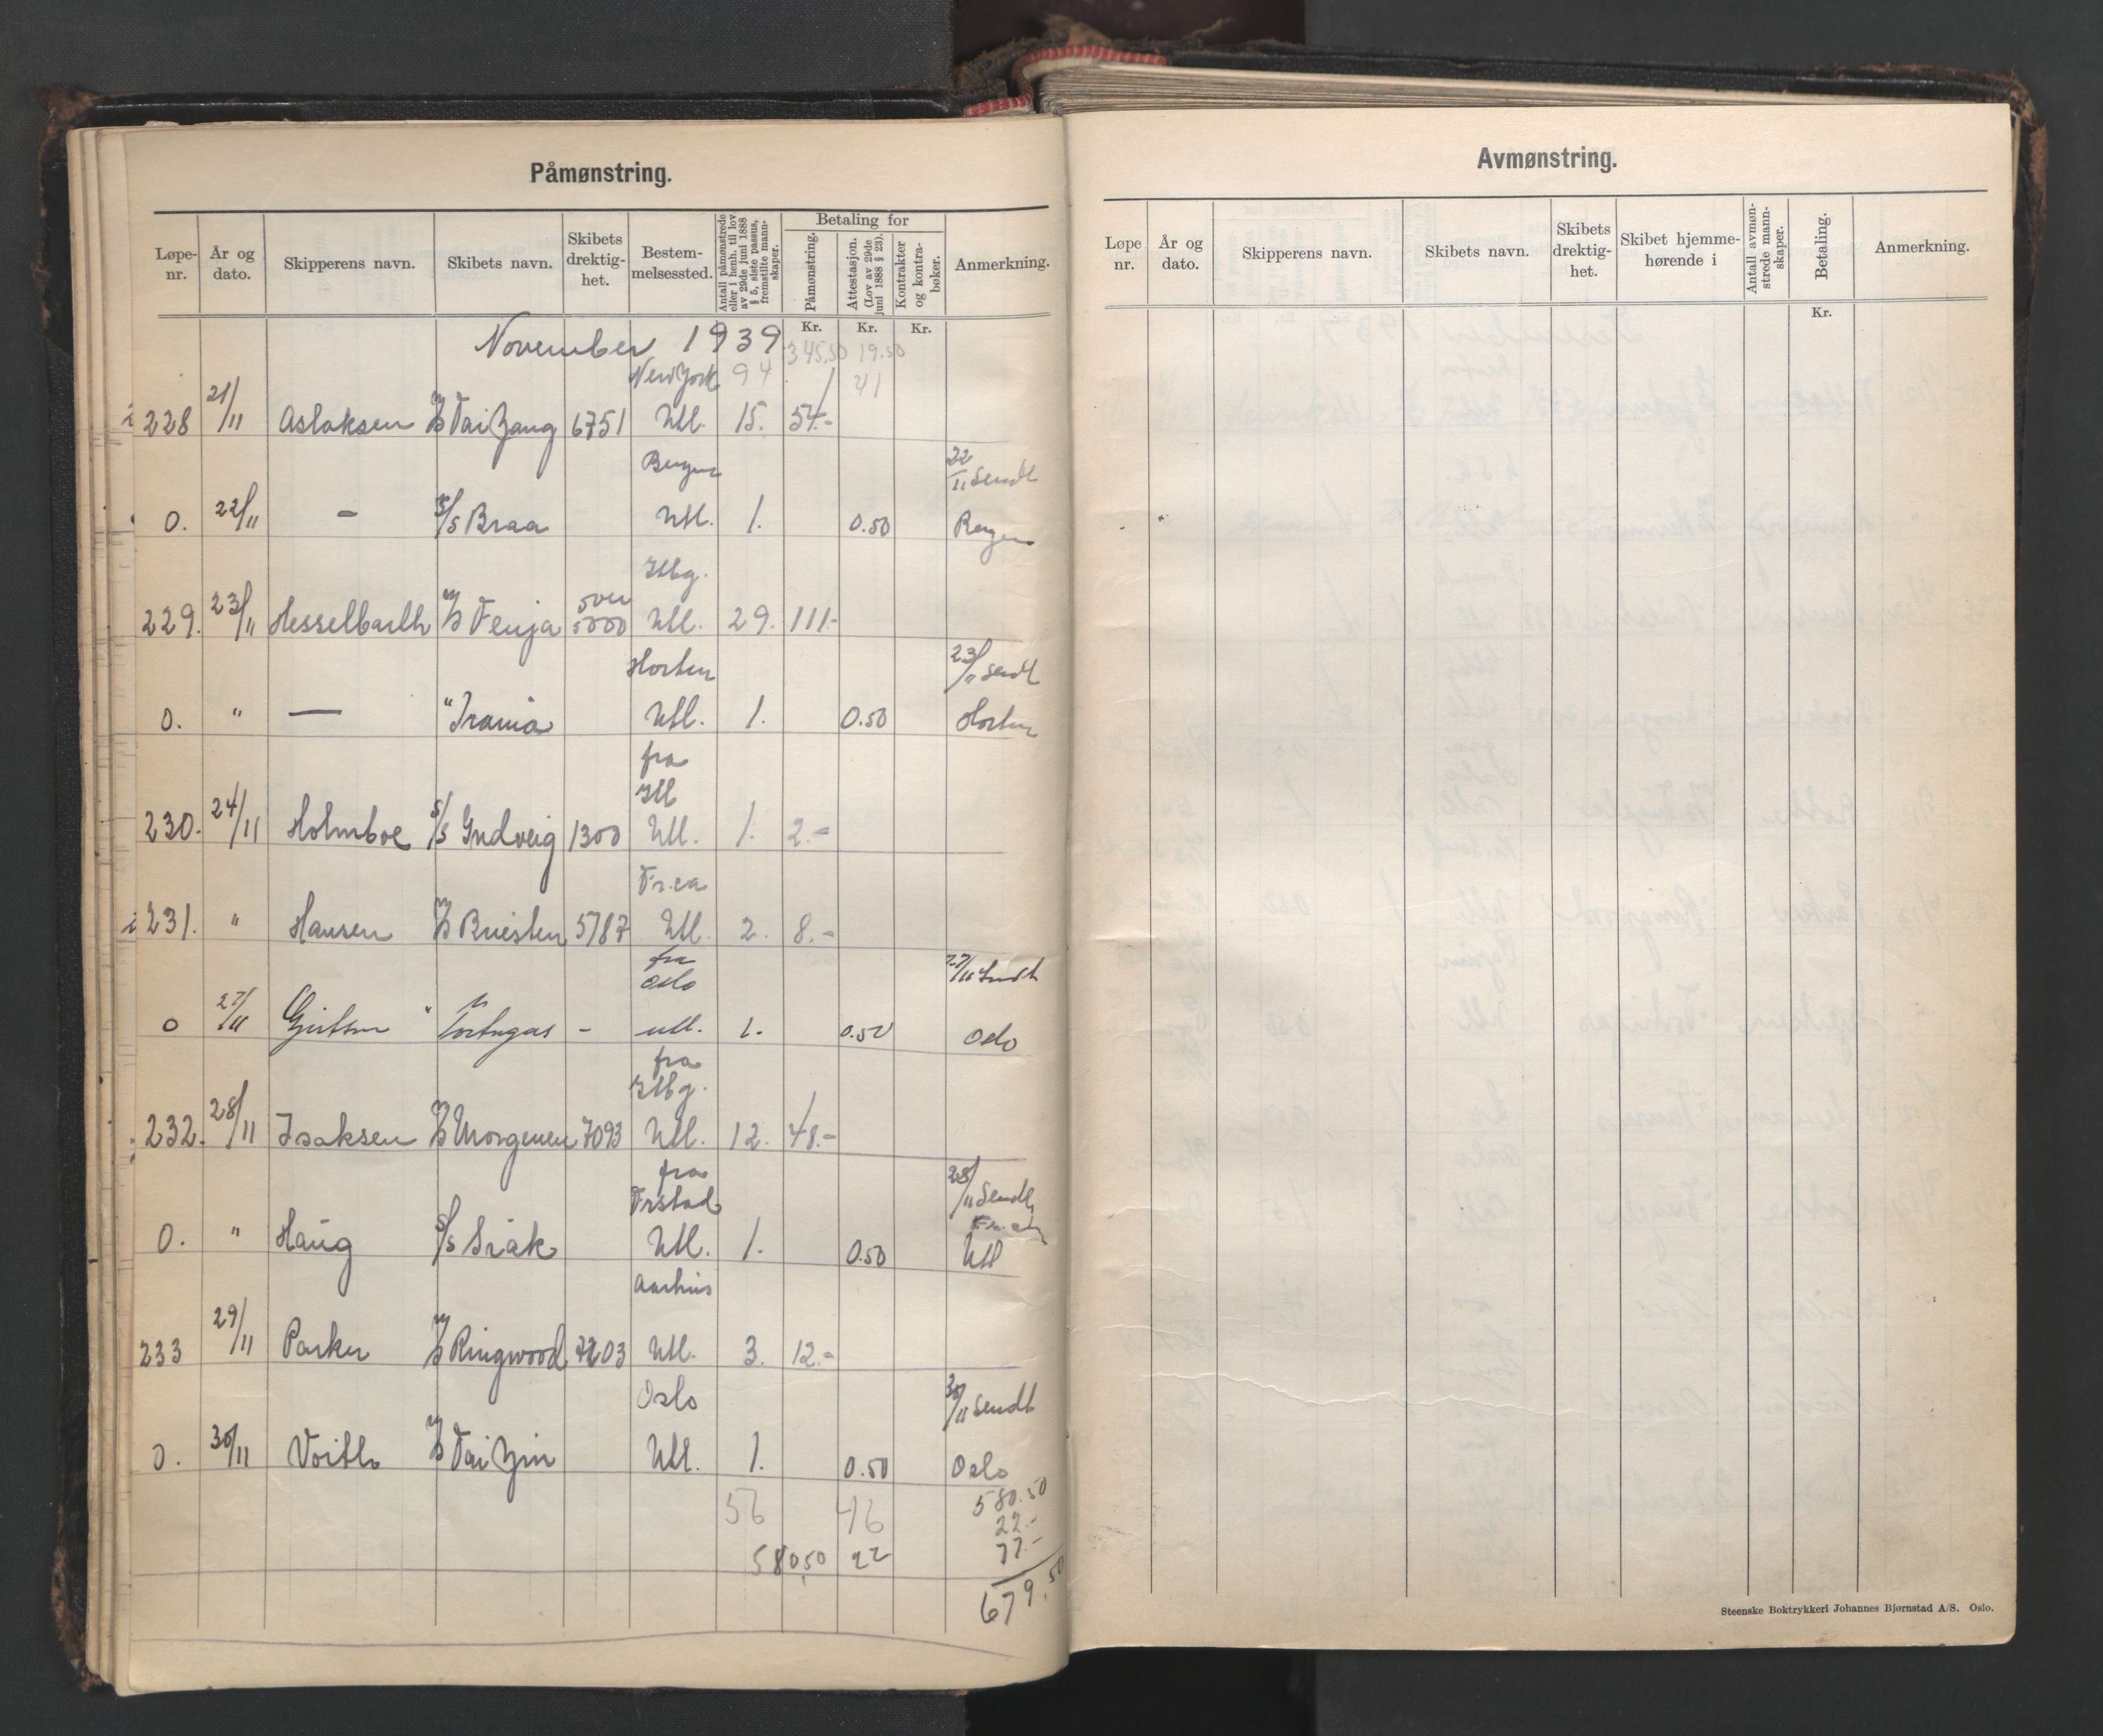 Påmønstring.
Løpe-nr. År og dato. Skipperens navn. Skibets navn. Skibets drektig-het. Bestem-melsessted. Antall påmønstrede eller i henh. til lov av 29de juni 1888 § 5, siste passus, fremstilte mann-skaper. Betaling for Påmønstring. Attestasjon. (Lov av 29de juni 1888 § 23). Kontrakter og kontra-bøker. Anmerkning.
Kr. Kr. Kr.
November 1939 345.50 19.50
New York 94 41
228 21/11 Aslaksen M/S Tai Yang 6751 Utl. 15. 54.-
Bergen 22/11 sendt
0. 22/11 - S/S Braa Utl. 1. 0.50 Bergen
Hbg.
229. 23/11 Hesselbarth M/S Fenja over 5000 Utl. 29. 111.-
Horten 23/11 sendt
0. " — " Irania Utl. 1. 0.50 Horten
fra
Hbl
230. 24/11 Holmboe S/S Gudveig 1300 Utl. 1. 2.-
Fr.ca
231. " Hansen M/S Buesten 5187 Utl. 2. 8.-
fra
Oslo 27/11 sendt
0 27/11 " M/S Tortugas - utl. 1. 0.50 Oslo
fra
Hbg.
232. 28/11 Isaksen M/S Morgenen 7093 Utl. 12. 48.-
fra
Frstad 28/11 sendt
0. " Haug S/S Siak Utl. 1. 0.50 Utl
Aarhus
233 29/11 Parker M/S Ringwood 7203 Utl. 3. 12.-
Oslo 30/11 sendt
0. 30/11 M/S Tai Yin Utl. 1. 0.50 Oslo
56 46 580.50
22.-
580,50 22 77.-
679.50
Avmønstring.
Løpe nr. År og dato. Skipperens navn. Skibets navn. Skibets drektig-het. Skibet hjemme-hørende i Antall avmøn-strede mann-skaper. Betaling. Anmerkning.
Kr.
Steenske Boktrykkeri Johannes Bjørnstad A/S. Oslo.